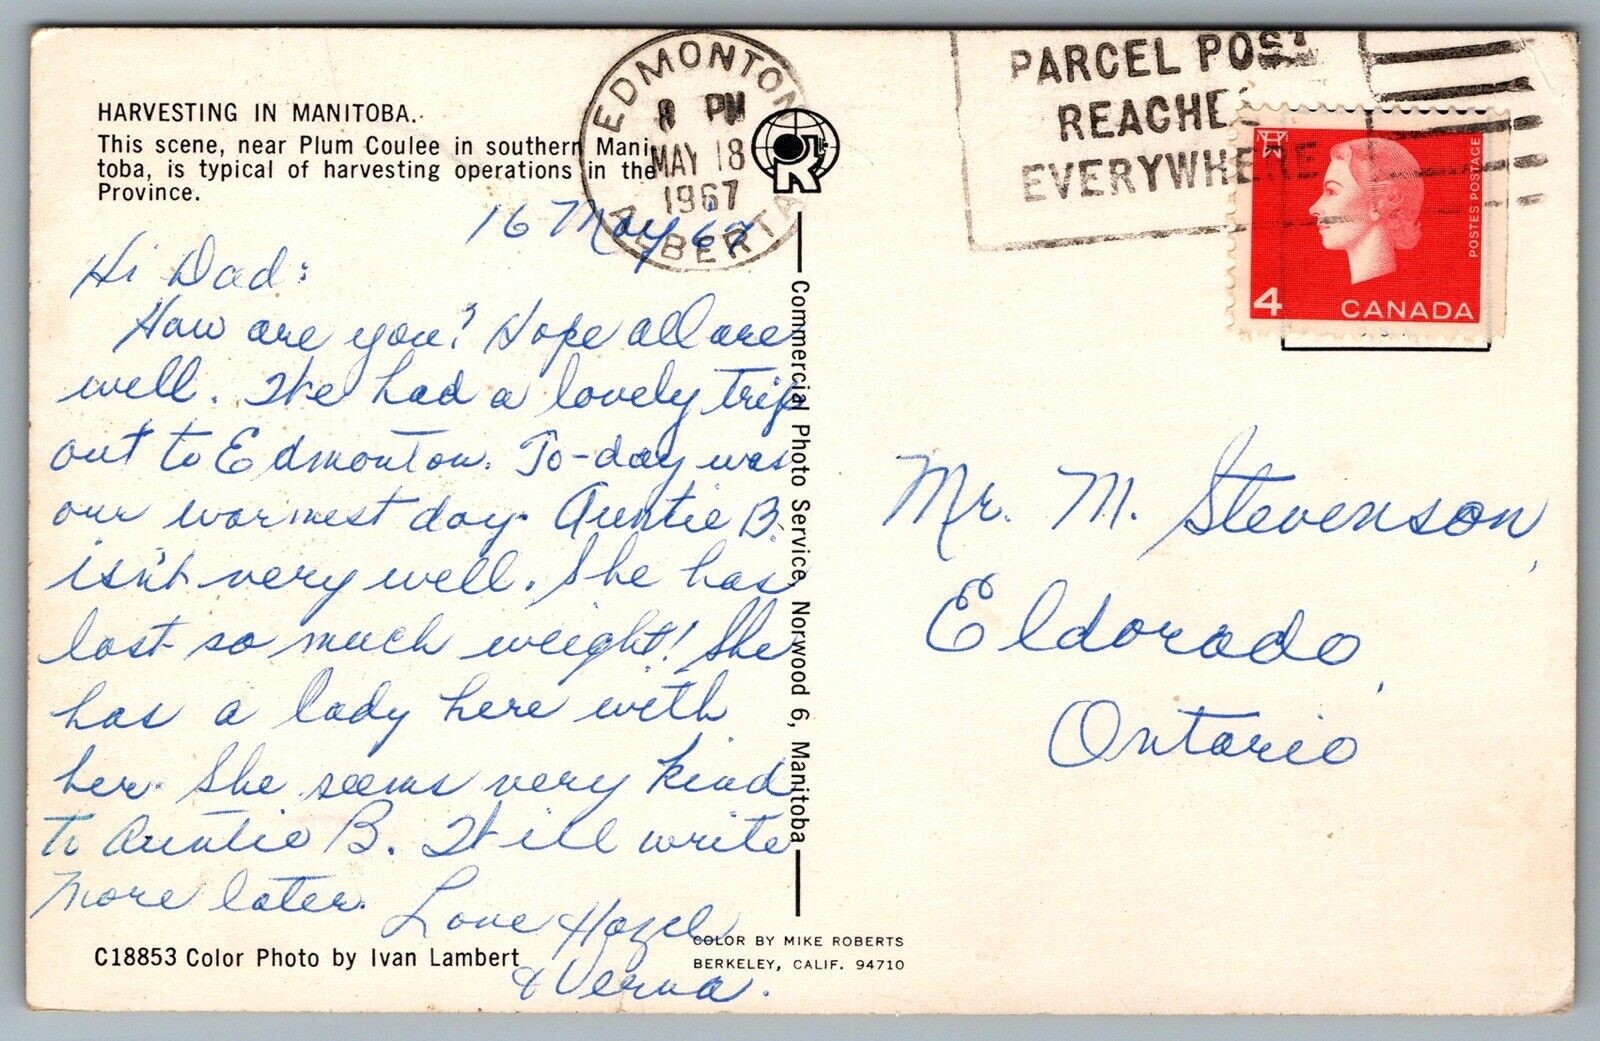 HARVESTING IN MANITOBA.
This scene, near Plum Coulee in southern Mani-
toba, is typical of harvesting operations in the
Province.
16 May '67
Hi Dad:
How are you? Hope all are
well. We had a lovely trip
out to Edmonton. To-day was
our warmest day. Auntie B.
isn't very well. She has
lost so much weight! She
has a lady here with
her. She seems very kind
to Auntie B. Will write
more later. Love Hazel
& Verna.
C18853 Color Photo by Ivan Lambert
COLOR BY MIKE ROBERTS
BERKELEY, CALIF. 94710
Commercial Photo Service, Norwood 6, Manitoba
EDMONTON
8 PM
MAY 18
1967
ALBERTA
PARCEL POST
REACHES
EVERYWHERE
POSTES POSTAGE
4 CANADA
Mr. M. Stevenson,
Eldorado,
Ontario